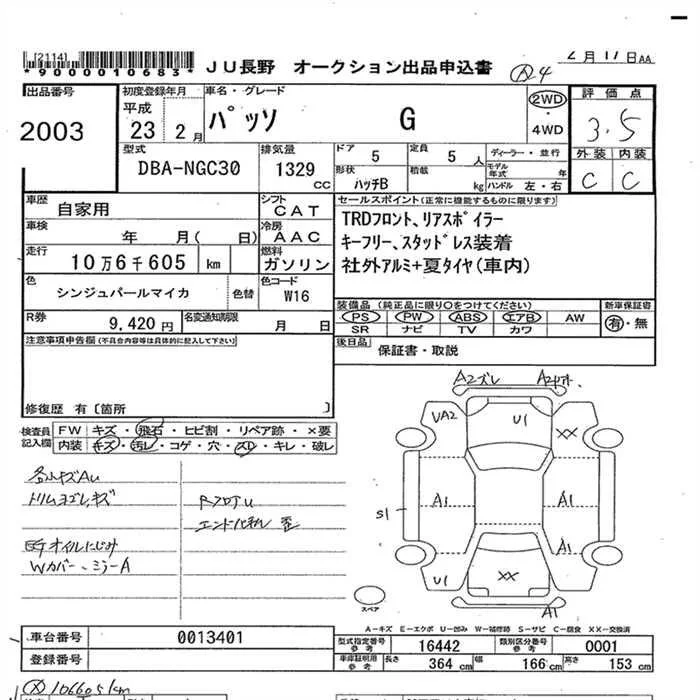 [2114]
*9000010683*
JU長野 オークション出品申込書
2月17日AA
Ⓐ4
出品番号
2003
初度登録年月
平成
23 2月
車名・グレード
パッソ G
2WD
・
4WD
評価点
3.5
外装 内装
C C
型式
DBA-NGC30
排気量
1329 CC
ドア 5
定員 5 人
ディーラー・並行
形状 ハッチB
積載 kg
モデル年式 年
ハンドル 左・右
車歴
自家用
シフト
CAT
セールスポイント(正常に機能するものに限ります)
TRDフロント、リアスポイラー
キーフリー、スタッドレス装着
社外アルミ+夏タイヤ(車内)
車検
年 月( 日)
冷房
AAC
走行
10万6千605 km
燃料
ガソリン
色
シンジュパールマイカ
色替
色コード
W16
装備品(純正品に限り○をつけてください)
新車保証書
PS ・ PW ・ ABS ・ エアB ・ AW
SR ナビ TV カワ
有・無
R券
9,420円
名変通知期限
月 日
後日品
保証書・取説
注意事項申告欄(不具合内容等は具体的に記入して下さい)
修復歴 有〔箇所 〕
検査員
記入欄
FW キズ・飛石・ヒビ割・リペア跡・×要
内装 キズ・汚レ・コゲ・穴・スレ・キレ・破レ
A2ズレ
UA2 U1 XX
各小キズAU
A1 A1
S1
A1
Wカバー、ミラーA
U1 XX
A1
スペア
A-キズ E-エクボ U-凹み W-補修跡 S-サビ C-腐食 XX-交換済
車台番号
0013401
型式指定番号
参考
16442
類別区分番号
参考
0001
登録番号
車庫証明用
参考
長さ 364 cm
幅 166 cm
高さ 153 cm
106605km